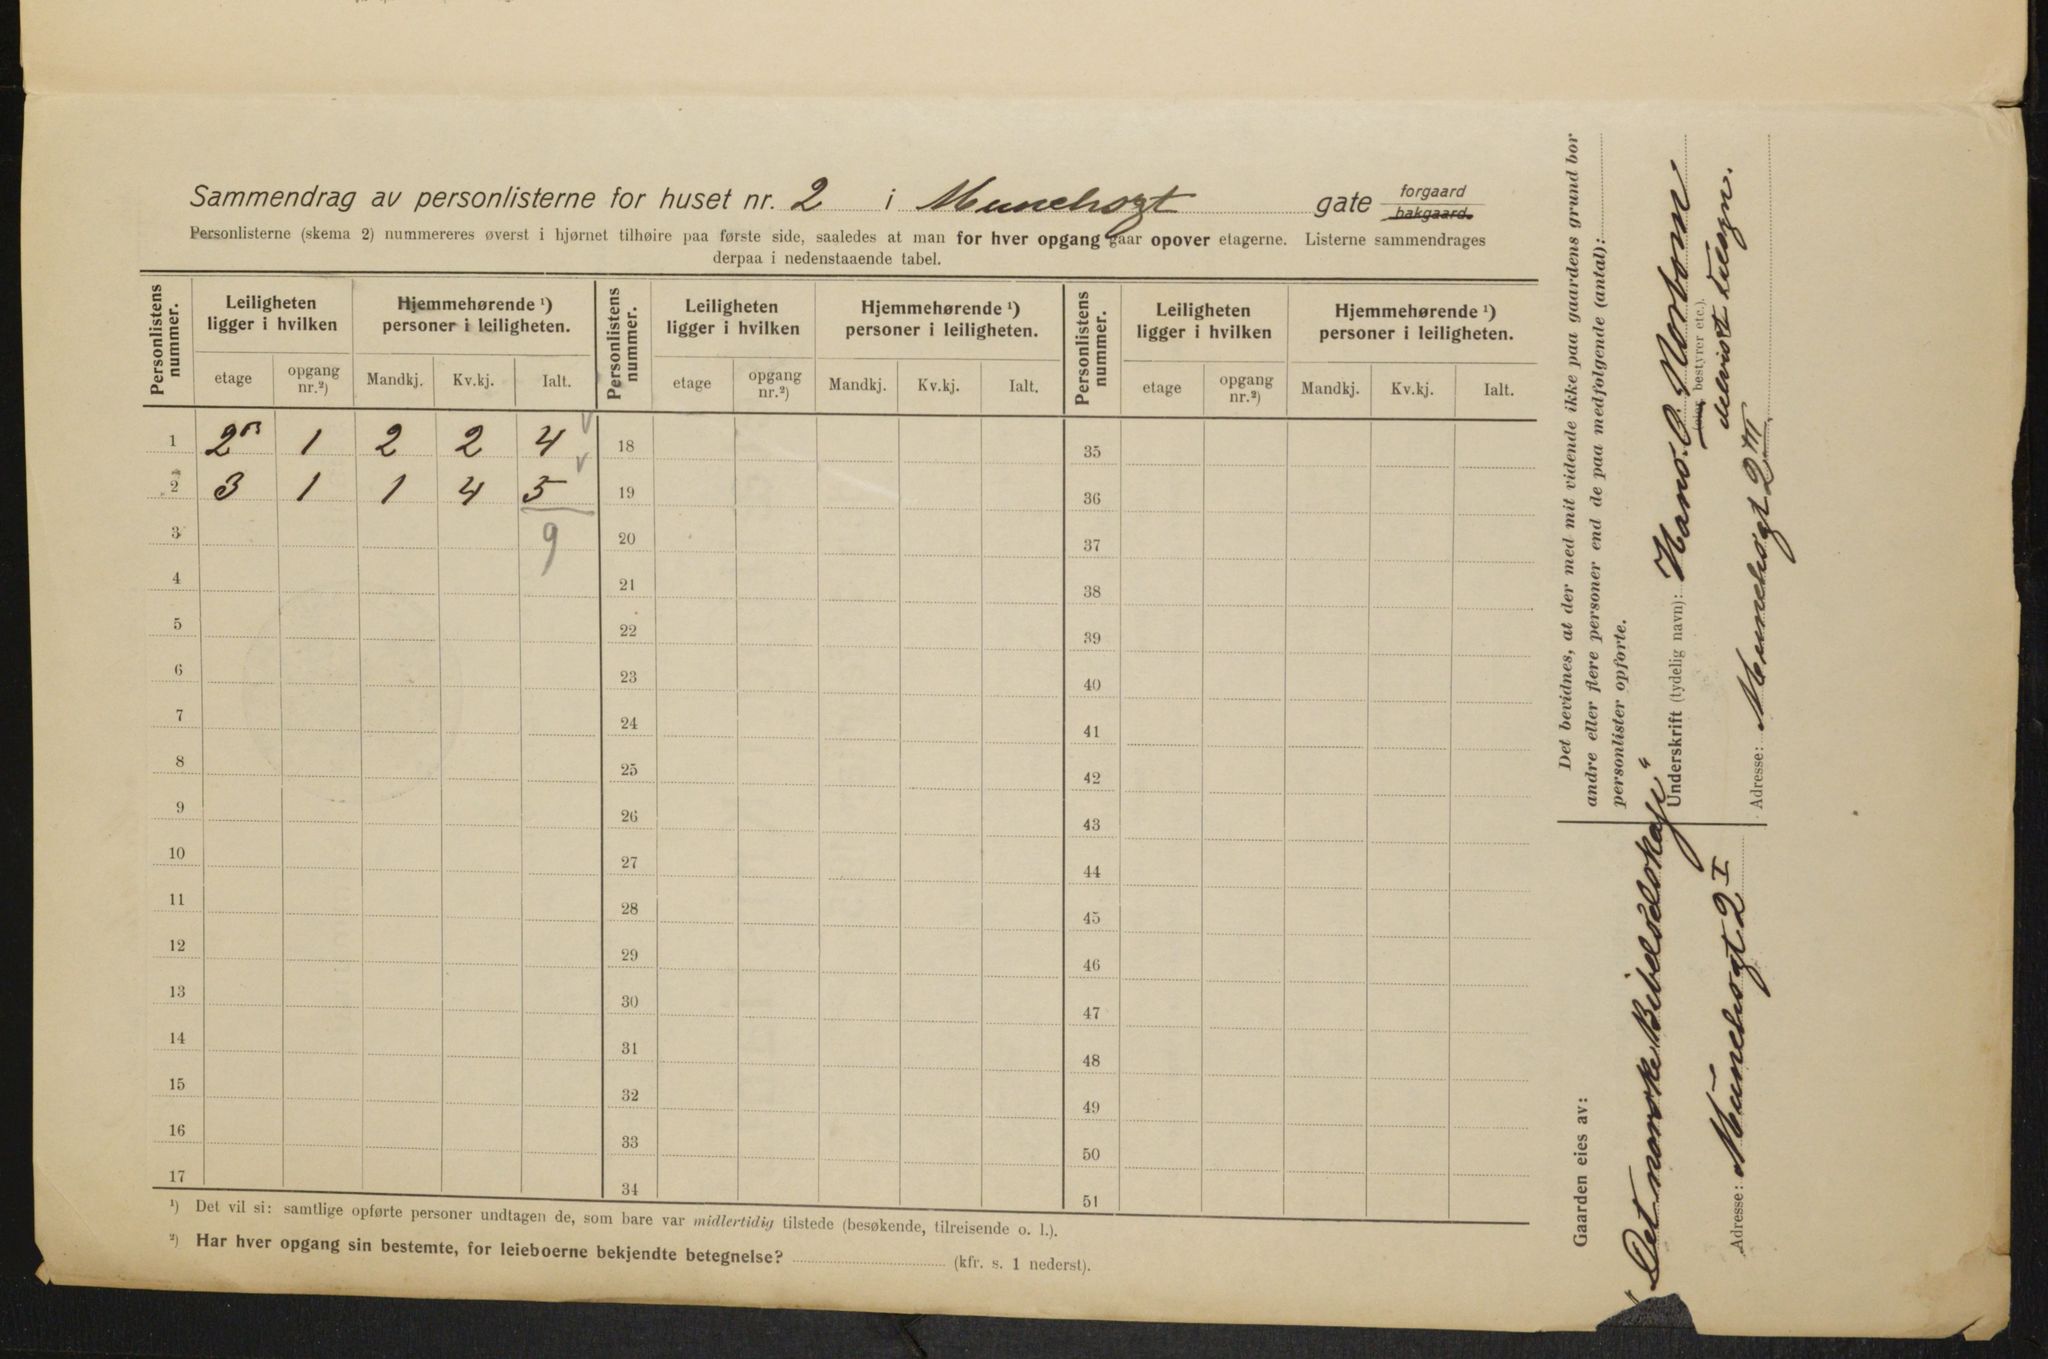 Sammendrag av personlisterne for huset nr. 2 i Munchsgt gate forgaard bakgaard.
Personlisterne (skema 2) nummereres øverst i hjørnet tilhøire paa første side, saaledes at man for hver opgang gaar opover etagerne. Listerne sammendrages
derpaa i nedenstaaende tabel.
Personlistens nummer. Leiligheten ligger i hvilken Hjemmehørende ¹) personer i leiligheten. Personlistens nummer. Leiligheten ligger i hvilken Hjemmehørende ¹) personer i leiligheten. Personlistens nummer. Leiligheten ligger i hvilken Hjemmehørende ¹) personer i leiligheten.
etage opgang nr.²) Mandkj. Kv.kj. Ialt. etage opgang nr.²) Mandkj. Kv.kj. Ialt. etage opgang nr.²) Mandkj. Kv.kj. Ialt.
1 2 1 2 2 4 18 35
2 3 1 1 4 5 19 36
3 9 20 37
4 21 38
5 22 39
6 23 40
7 24 41
8 25 42
9 26 43
10 27 44
11 28 45
12 29 46
13 30 47
14 31 48
15 32 49
16 33 50
17 34 51
¹) Det vil si: samtlige opførte personer undtagen de, som bare var midlertidig tilstede (besøkende, tilreisende o. l.).
²) Har hver opgang sin bestemte, for leieboerne bekjendte betegnelse? (kfr. s. 1 nederst).
Det bevidnes, at der med mit vidende ikke paa gaardens grund bor
andre eller flere personer end de paa medfølgende (antal):
personlister opførte.
Underskrift (tydelig navn): Hans O. Norbom
bestyrer etc.).
Adresse: Munchsgt 2 III
Gaarden eies av:
"Det norske Bibelselskap"
Adresse: Munchsgt. 2 I